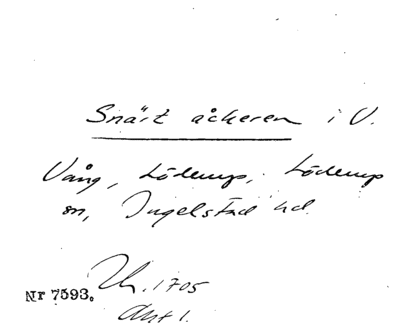 Snärt åckeren i V.
Vång, Löderup, Löderup
sn, Ingelstad hd.
Nr 7593. Lh. 1705
Akt 1.